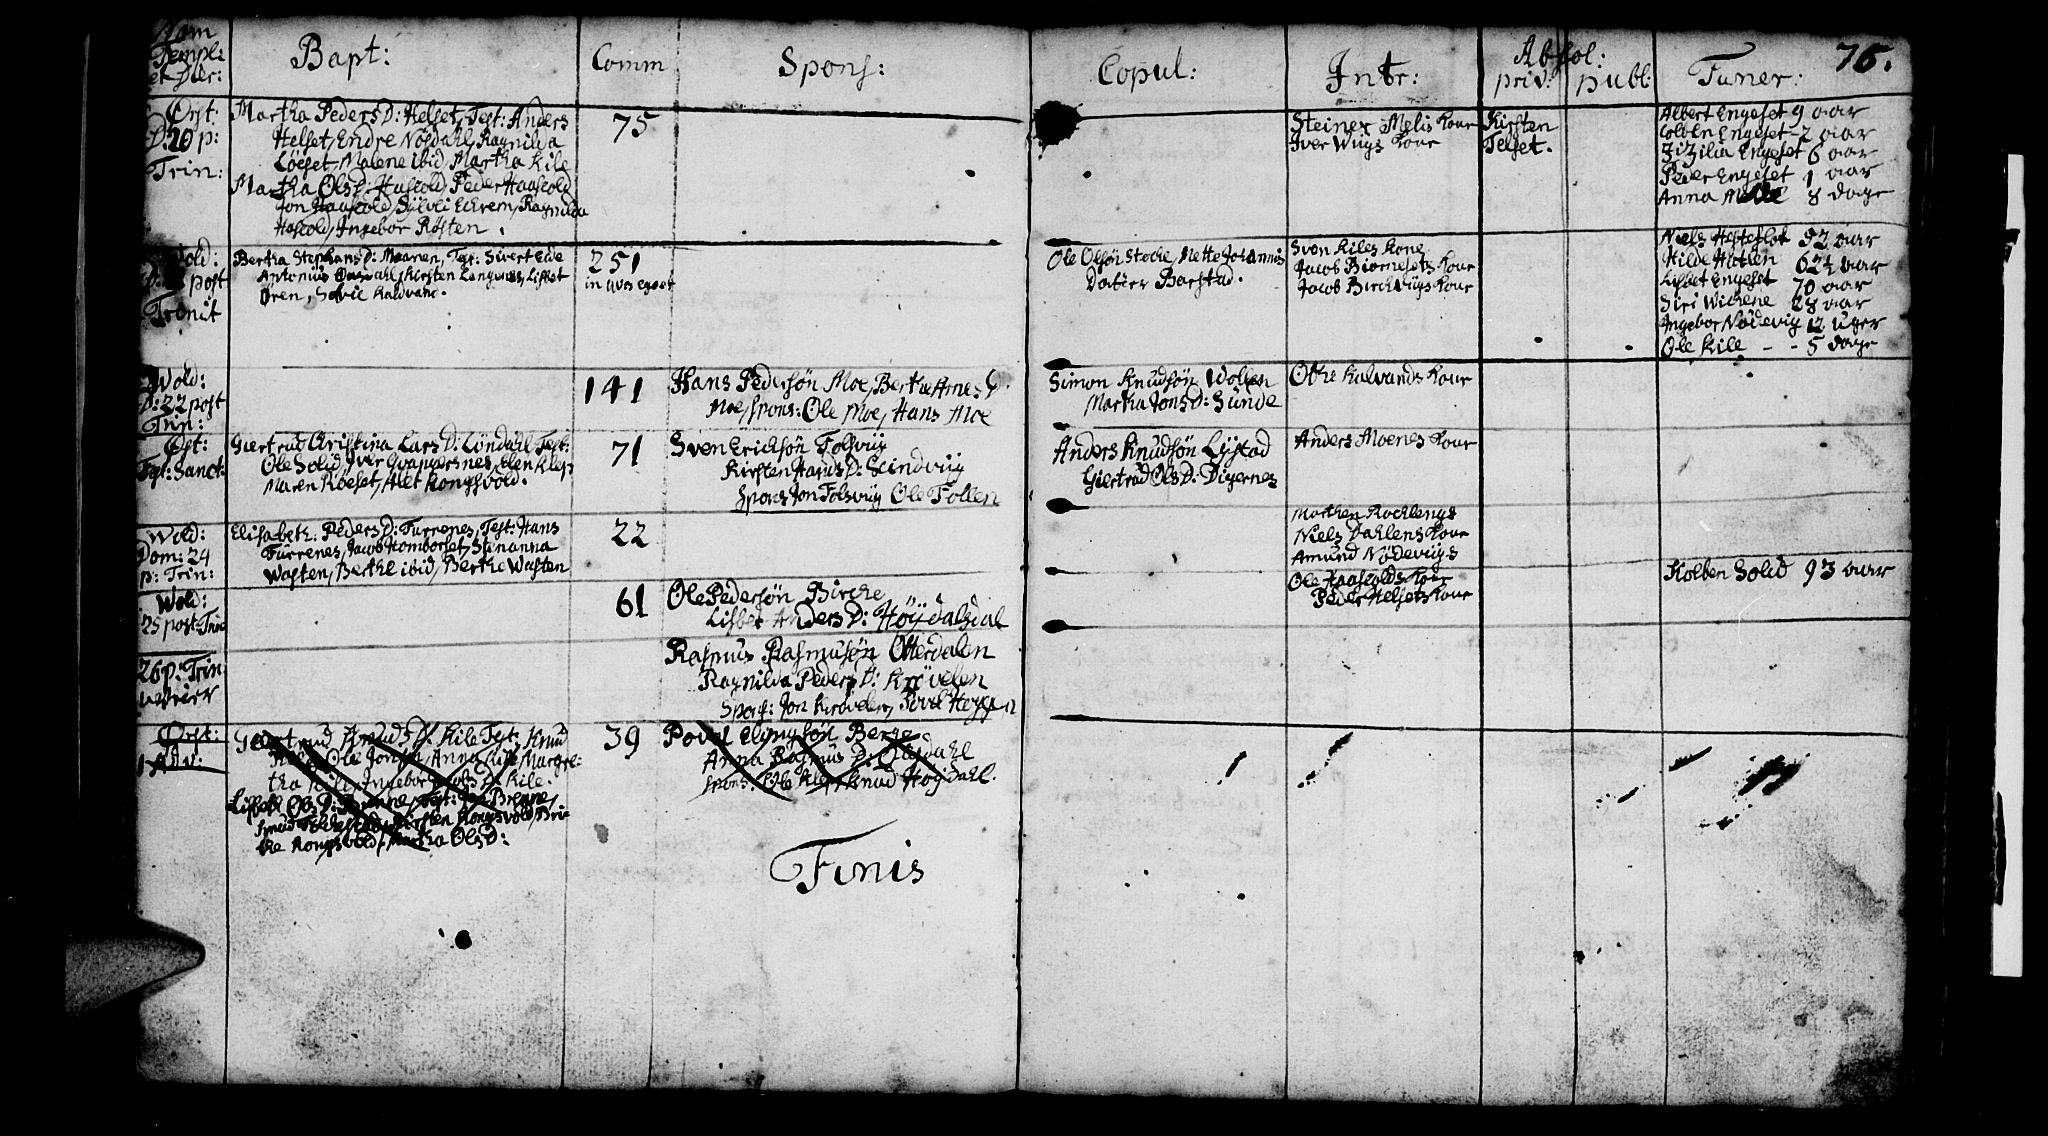 Nom
Templ:
et Dier:
Bapt:
Comm
Spons:
Copul:
Intr:
Absol:
priv: publ:
Funer:
76.
Ørst:
D: 20 p:
Trin:
Martha PedersD: Helset, Test: Anders
Helset, Endre Nosdahl, Ragnilda
Löeset, Malene ibid, Martha Kile
Martha OlsD: Hascold, Peder Haascold
Jon Haascold, Sylvei Eckrem, Ragnilda
Hascold, Ingebor Rösten.
75
Steiner Melis Kone
Iver Wügs Kone
Kirsten
Telset.
Albert Engeset 9 aar
Colben Engeset 2 aar
Zizilia Engeset 6 aar
Peder Engeset 1 aar
Anna 8 dage
Wold:
post
Trinit
Bertha StephansD: Moanen, Tgt: Sivert Eide
Antonius Kirsten Langenes, Lisbet
Ören, Sovie Kaldvatn.
251
Ole Olsön Steche, Mette Johannis
Datter Barstad.
Sven Kiles Kone
Jacob Biörnesets Kone
Jacob Birchvügs Kone
Niels Hesteflot 92 aar
Hilde Hlotlen 62½ aar
Lisbet Engeset 70 aar
Siri Wichene 28 aar
Ingebor Nödevig 12 Uger
Ole Kile - - 5 dage
Wold:
D: 22 post
Trin:
141
Hans Pedersön Moe, Bertha Arnes D.
Moe, spons: Ole Moe, Hans Moe
Simon Knudsön Wollen
Martha JonsD: Sünde
Othe Kalvands Kone
Øst:
Fgt: Sanct:
Giertrud Christina LarsD: Löndahl Test:
Ole Solid, Iver Grappesnes, Elen Klep
Maren Röeset, Alet Kongsvold.
71
Sven Erichsön Folsvüg
Kirsten HansD: Scindvüg
Spons Jon Folsvüg Ole Follen
Anders Knudsön Lystad
Giertrud OlsD: Digernes
Anders Moenes Kone
Wold:
Dom: 24
p: Trin:
Elisabeth PedersD: Furrenes, Test: Hans
Furrenes, Jacob Homborset, Stinanna
Wasten, Berthe ibid, Berthe Wasten
22
Morthen Rochlengs
Niels Dahlens Kone
Amund Nödevügs
Wold:
25 post Trin
61
Ole Pedersön Birche
Lisbet AndersD: Höydalsdal
Ole Haascolds Kone
Peder Helsets Kone
Kolben Solid 93 aar
26 p: Trin:
Rasmus Rasmusön Otterdalen
Ragnilda PedersD: Krövelen
Spons: Jon Krövelen, Povel
Ørst:
1 Adv:
Giertrud KnudsD: Kile Tgt: Knud
Ole Jonsn, Anna Kile, Margre-
tha Kile, Ingebor OlsD: Kile.
Lisbet OlsD: Brenne, Tgt: Jon Brenne,
Kirsten Kongsvold, Bri-
the Kongsvold, Martha OlsD:
39
Povel Elingsön Berge
Anna RasmusD:
spons: Ole Klep, Knud Höydahl.
Finis